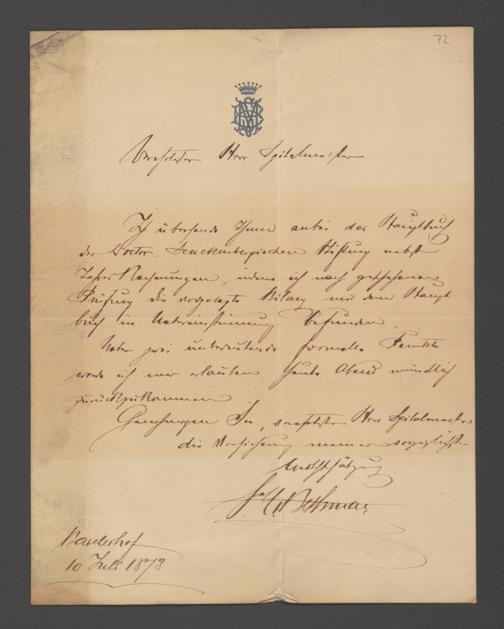 72
Verehrtester Herr Spitalmeister
Ich übersende Ihnen anbei das Hauptbuch
der Doctor Senckenbergischen Stiftung nebst
Jahres Rechnungen, indem ich nach geschehener
Prüfung die vorgelegte Bilanz mit dem Haupt
buch in Uebereinstimmung befunden.
Ueber zwei unbedeutende formelle Punkte
werde ich mir erlauben heute Abend mündlich
zurückzukommen.
Genehmigen Sie, verehrtester Herr Spitalmeister
die Versicherung meiner vorzüglichsten
Hochschätzung
Bethmann
10 Juli 1873